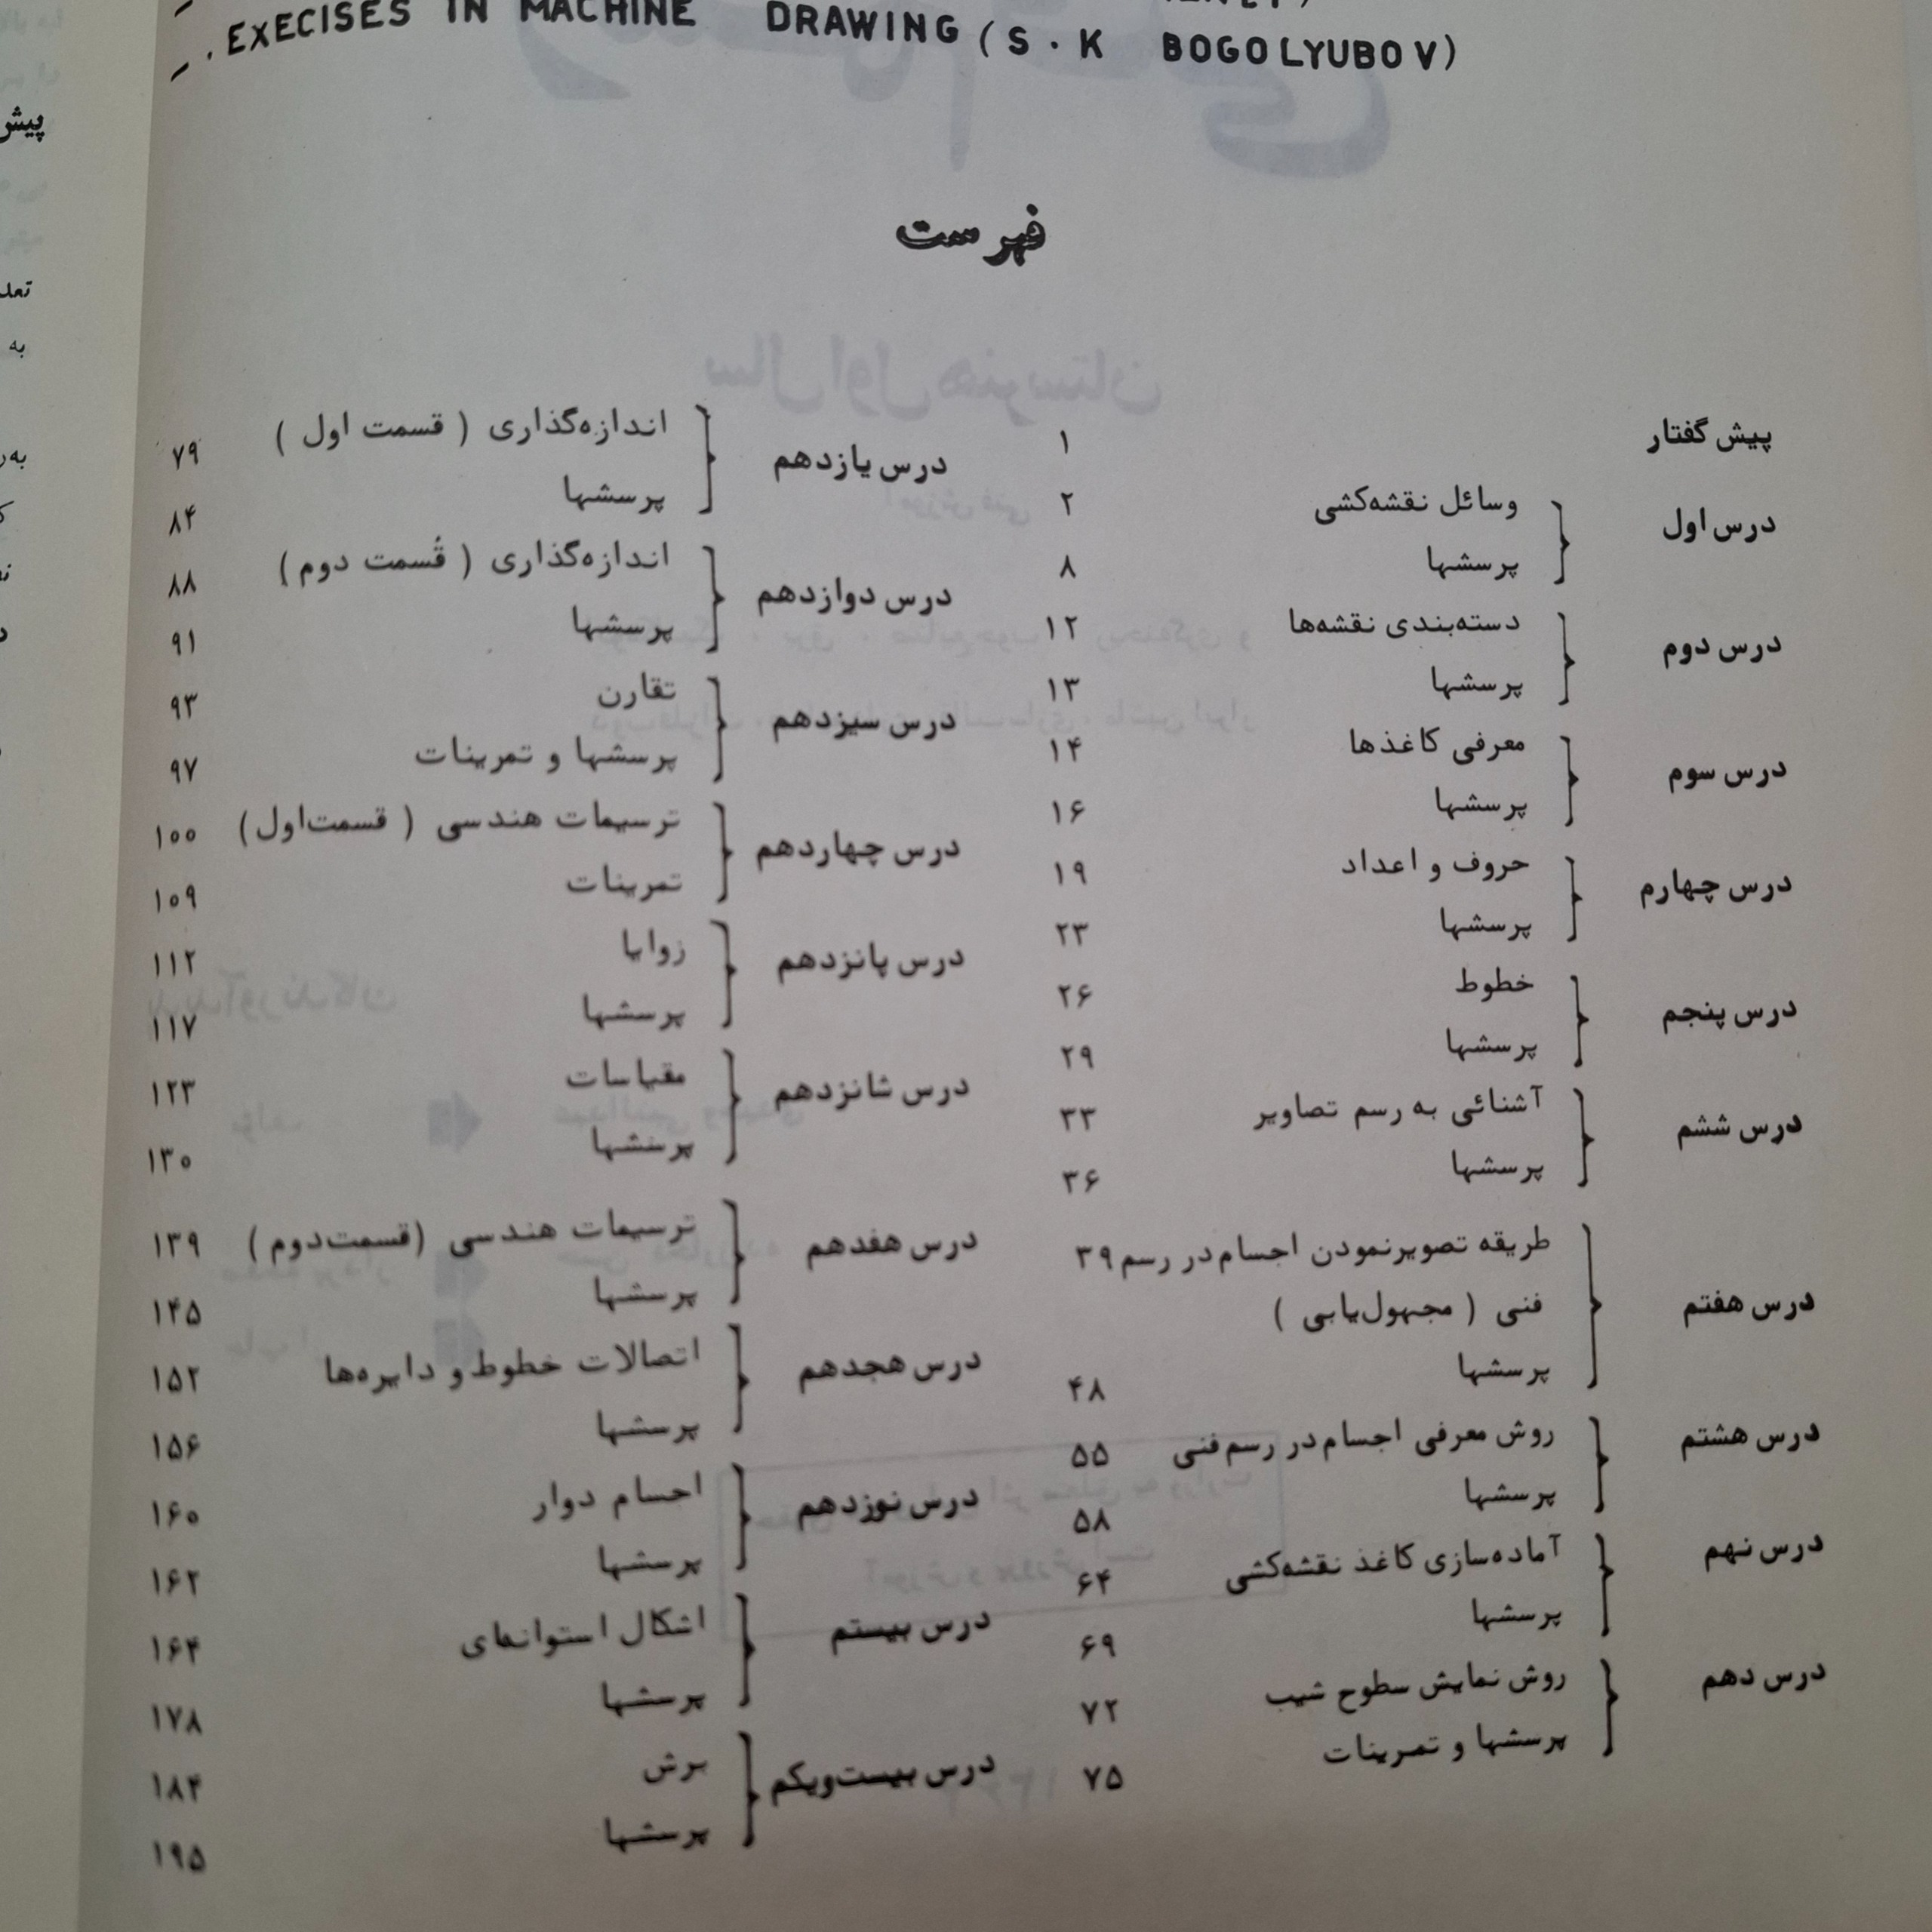 . EXECISES IN MACHINE DRAWING ( S . K BOGOLYUBOV)
فهرست
پیش گفتار ۱
درس اول
وسائل نقشه‌کشی ۲
پرسشها ۸
درس دوم
دسته‌بندی نقشه‌ها ۱۲
پرسشها ۱۳
درس سوم
معرفی کاغذها ۱۴
پرسشها ۱۶
درس چهارم
حروف و اعداد ۱۹
پرسشها ۲۳
درس پنجم
خطوط ۲۶
پرسشها ۲۹
درس ششم
آشنائی به رسم تصاویر ۳۳
پرسشها ۳۶
درس هفتم
طریقه تصویرنمودن اجسام در رسم ۳۹
فنی ( مجهول‌یابی )
پرسشها ۴۸
درس هشتم
روش معرفی اجسام در رسم فنی ۵۵
پرسشها ۵۸
درس نهم
آماده‌سازی کاغذ نقشه‌کشی ۶۴
پرسشها ۶۹
درس دهم
روش نمایش سطوح شیب ۷۲
پرسشها و تمرینات ۷۵
درس یازدهم
اندازه‌گذاری ( قسمت اول ) ۷۹
پرسشها ۸۴
درس دوازدهم
اندازه‌گذاری ( قسمت دوم ) ۸۸
پرسشها ۹۱
درس سیزدهم
تقارن ۹۳
پرسشها و تمرینات ۹۷
درس چهاردهم
ترسیمات هندسی ( قسمت‌اول ) ۱۰۰
تمرینات ۱۰۹
درس پانزدهم
زوایا ۱۱۲
پرسشها ۱۱۷
درس شانزدهم
مقیاسات ۱۲۳
پرسشها ۱۳۰
درس هفدهم
ترسیمات هندسی (قسمت‌دوم ) ۱۳۹
پرسشها ۱۴۵
درس هجدهم
اتصالات خطوط و دایره‌ها ۱۵۲
پرسشها ۱۵۶
درس نوزدهم
اجسام دوار ۱۶۰
پرسشها ۱۶۲
درس بیستم
اشکال استوانه‌ای ۱۶۴
پرسشها ۱۷۸
درس بیست‌ویکم
برش ۱۸۴
پرسشها ۱۹۵
پیش
تعل
به